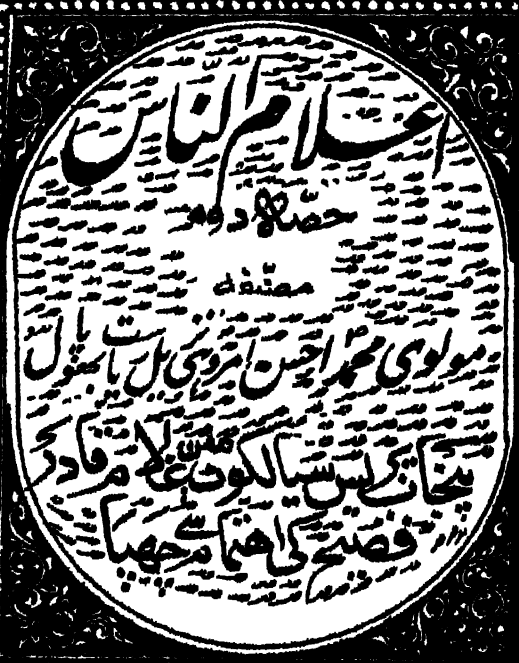 اعلام الناس
حصہ دوم
مصنفہ
مولوی محمد احسن امروہی ریاست بھوپال
پنجاب پریس سیالکوٹ میں غلام قادر
فصیح کی اہتمام سے چھپا